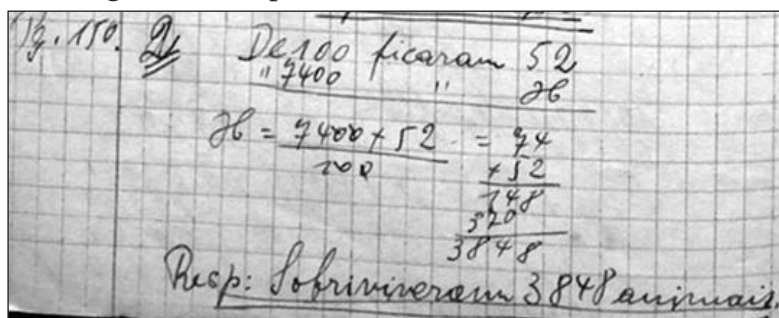 Pg. 150. 2) De 100 ficaram 52
" 7400 " x
x = 7400 x 52 = 74
100 x 52
148
370
3848
Resp: Sobriviveram 3848 animais.